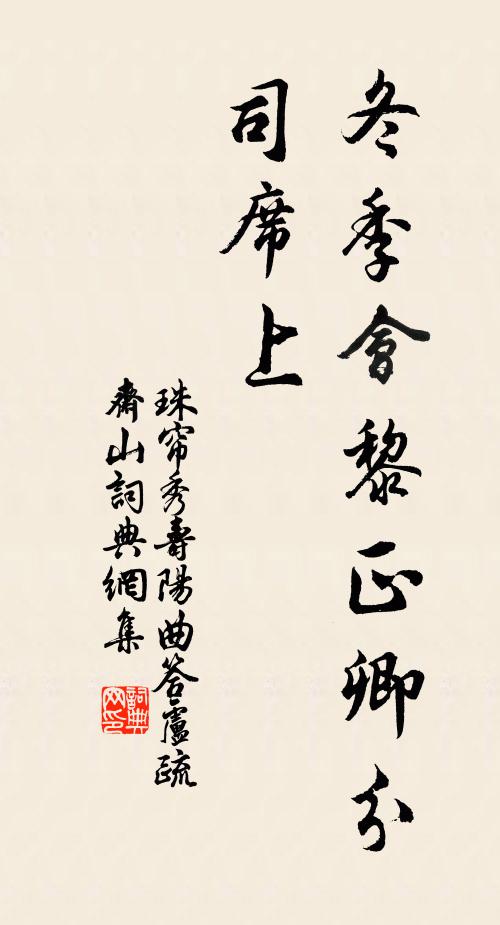 冬季會黎正卿分
司席上
珠帘秀壽陽曲答盧疏
齋山詞典網集
詞典
网印